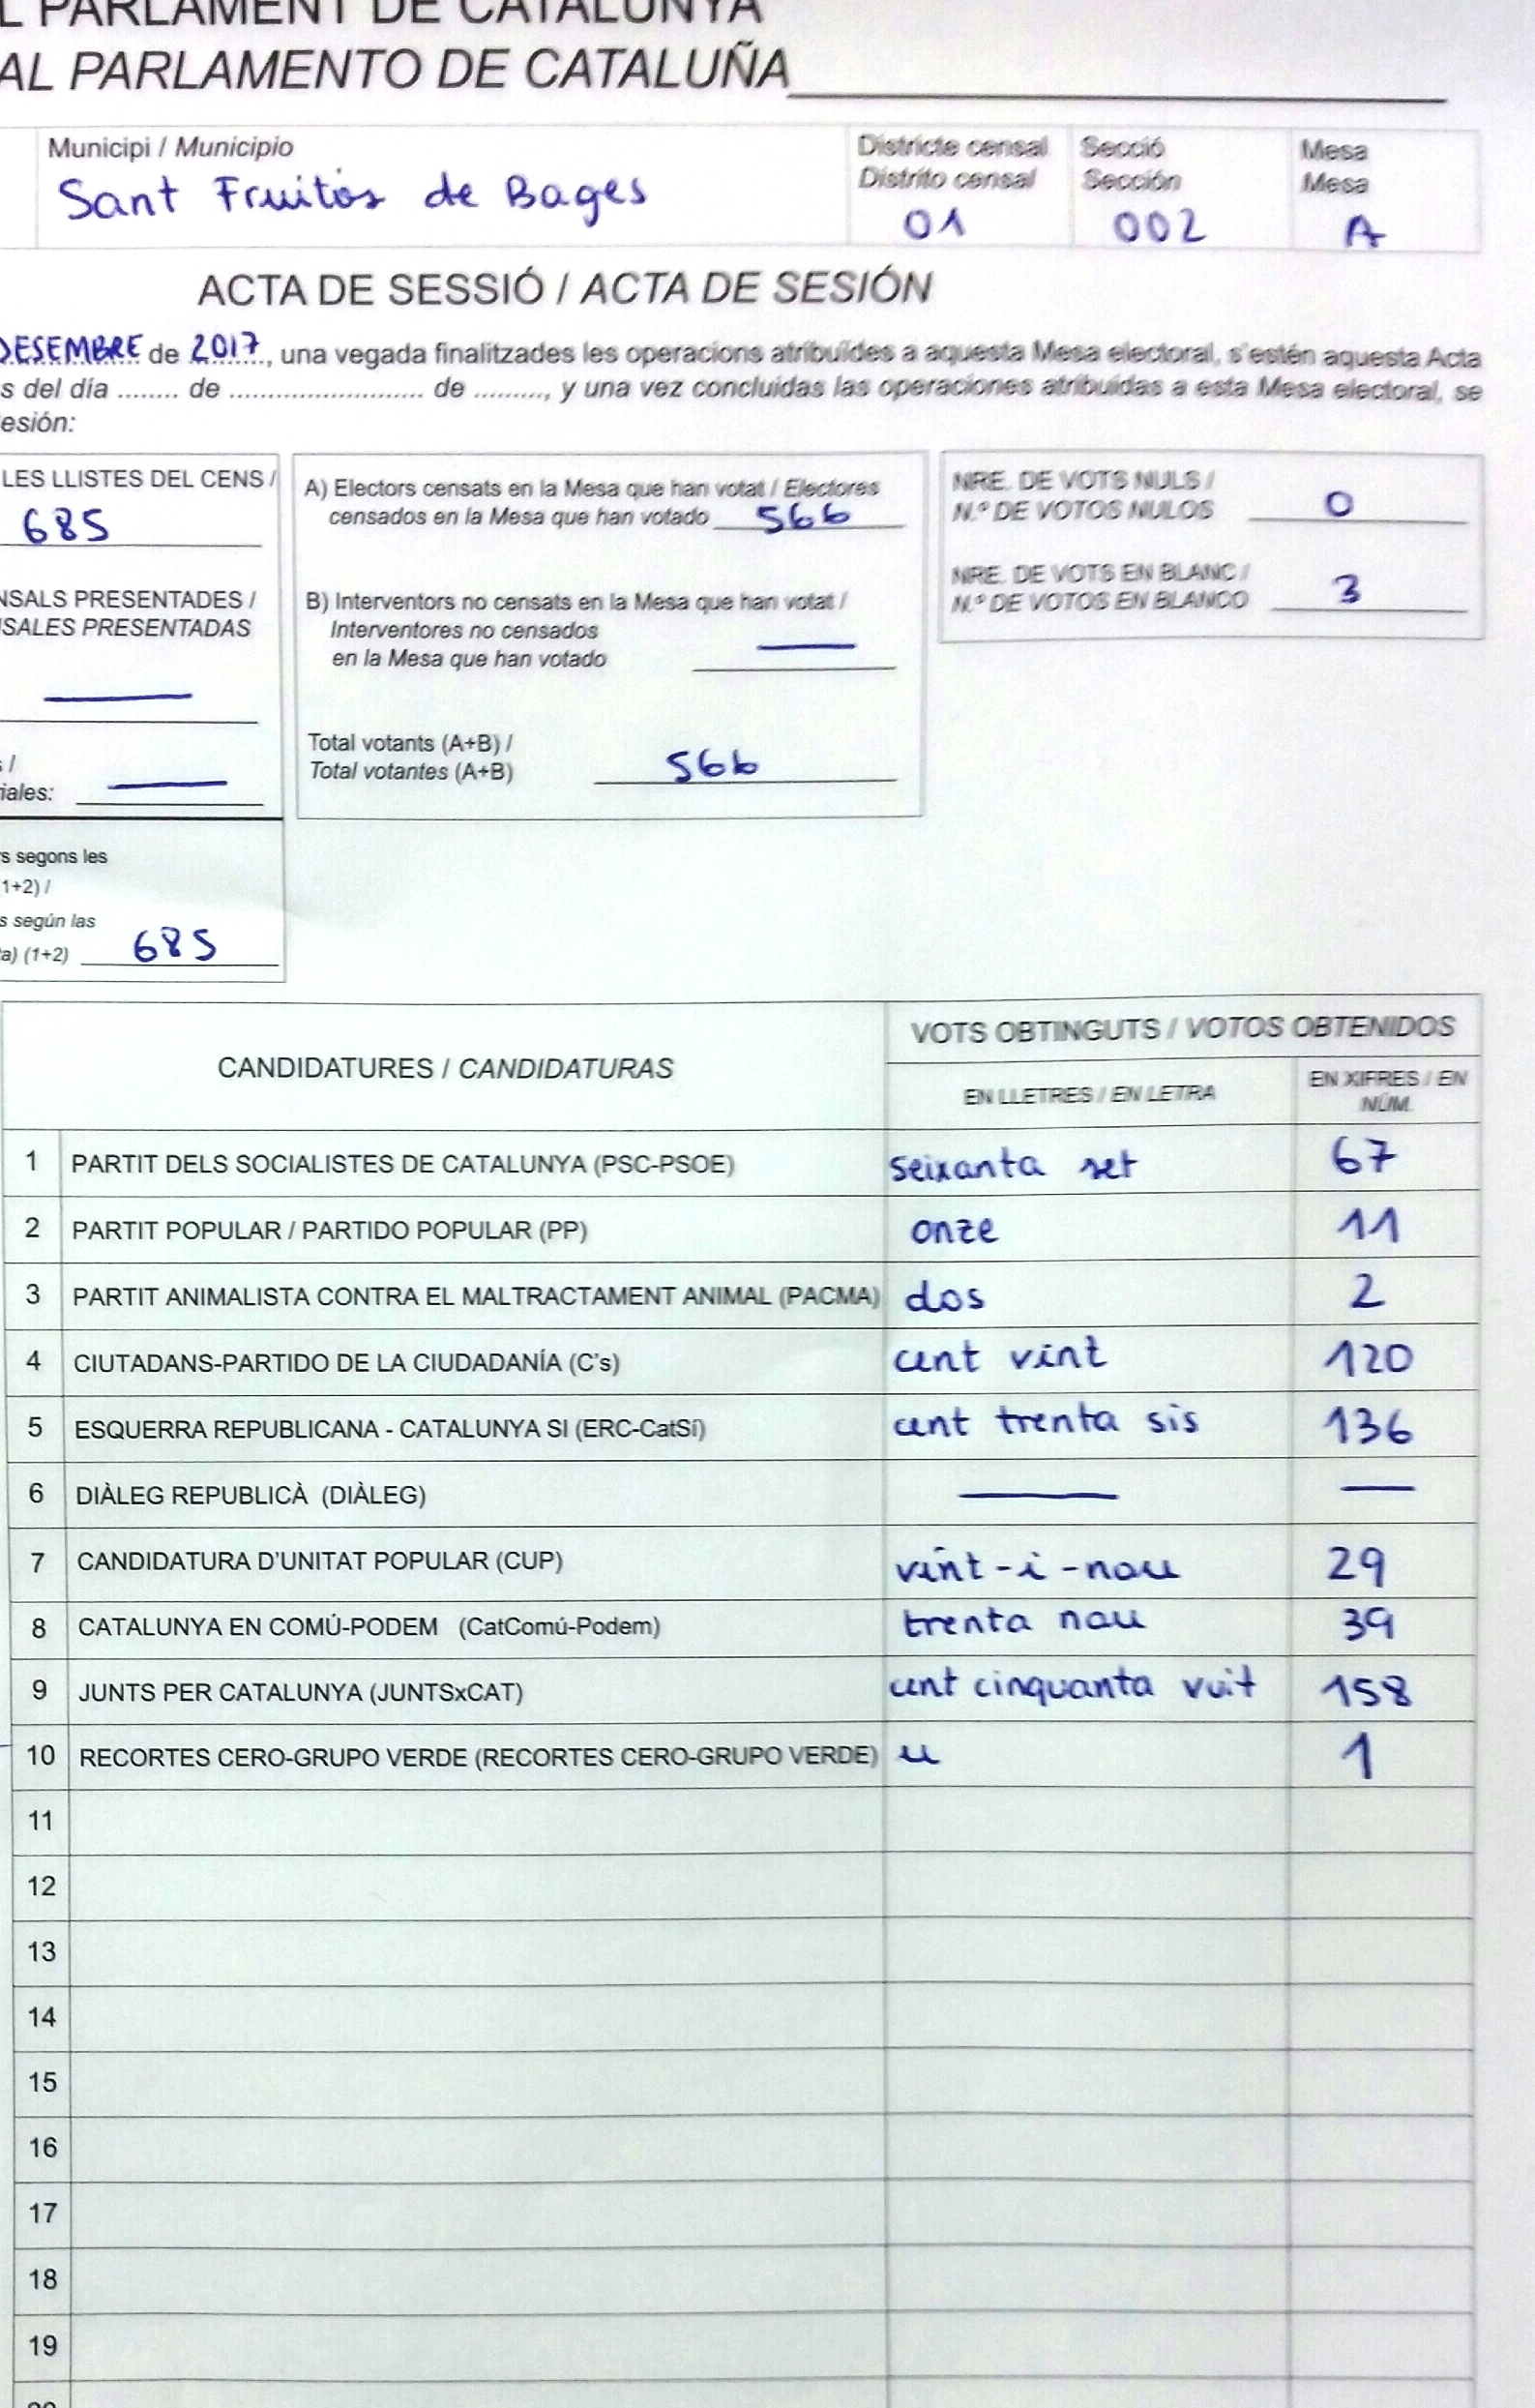 L PARLAMENT DE CATALUNYA
AL PARLAMENTO DE CATALUÑA
Municipi / Municipio
Sant Fruitós de Bages
Districte censal
Distrito censal
01
Secció
Sección
002
Mesa
Mesa
A
ACTA DE SESSIÓ / ACTA DE SESIÓN
DESEMBRE de 2017, una vegada finalitzades les operacions atribuïdes a aquesta Mesa electoral, s'estén aquesta Acta
s del día ........ de ........................ de ........., y una vez concluidas las operaciones atribuidas a esta Mesa electoral, se
esión:
LES LLISTES DEL CENS /
685
NSALS PRESENTADES /
SALES PRESENTADAS
s /
iales:
s segons les
1+2) /
s según las
a) (1+2) 685
A) Electors censats en la Mesa que han votat / Electores
censados en la Mesa que han votado 566
B) Interventors no censats en la Mesa que han votat /
Interventores no censados
en la Mesa que han votado
Total votants (A+B) /
Total votantes (A+B) 566
NRE. DE VOTS NULS /
N.º DE VOTOS NULOS 0
NRE. DE VOTS EN BLANC /
N.º DE VOTOS EN BLANCO 3
CANDIDATURES / CANDIDATURAS
VOTS OBTINGUTS / VOTOS OBTENIDOS
EN LLETRES / EN LETRA
EN XIFRES / EN
NÚM.
1 PARTIT DELS SOCIALISTES DE CATALUNYA (PSC-PSOE) seixanta set 67
2 PARTIT POPULAR / PARTIDO POPULAR (PP) onze 11
3 PARTIT ANIMALISTA CONTRA EL MALTRACTAMENT ANIMAL (PACMA) dos 2
4 CIUTADANS-PARTIDO DE LA CIUDADANÍA (C's) cent vint 120
5 ESQUERRA REPUBLICANA - CATALUNYA SI (ERC-CatSí) cent trenta sis 136
6 DIÀLEG REPUBLICÀ (DIÀLEG) — —
7 CANDIDATURA D'UNITAT POPULAR (CUP) vint-i-nou 29
8 CATALUNYA EN COMÚ-PODEM (CatComú-Podem) trenta nou 39
9 JUNTS PER CATALUNYA (JUNTSxCAT) cent cinquanta vuit 158
10 RECORTES CERO-GRUPO VERDE (RECORTES CERO-GRUPO VERDE) u 1
11
12
13
14
15
16
17
18
19